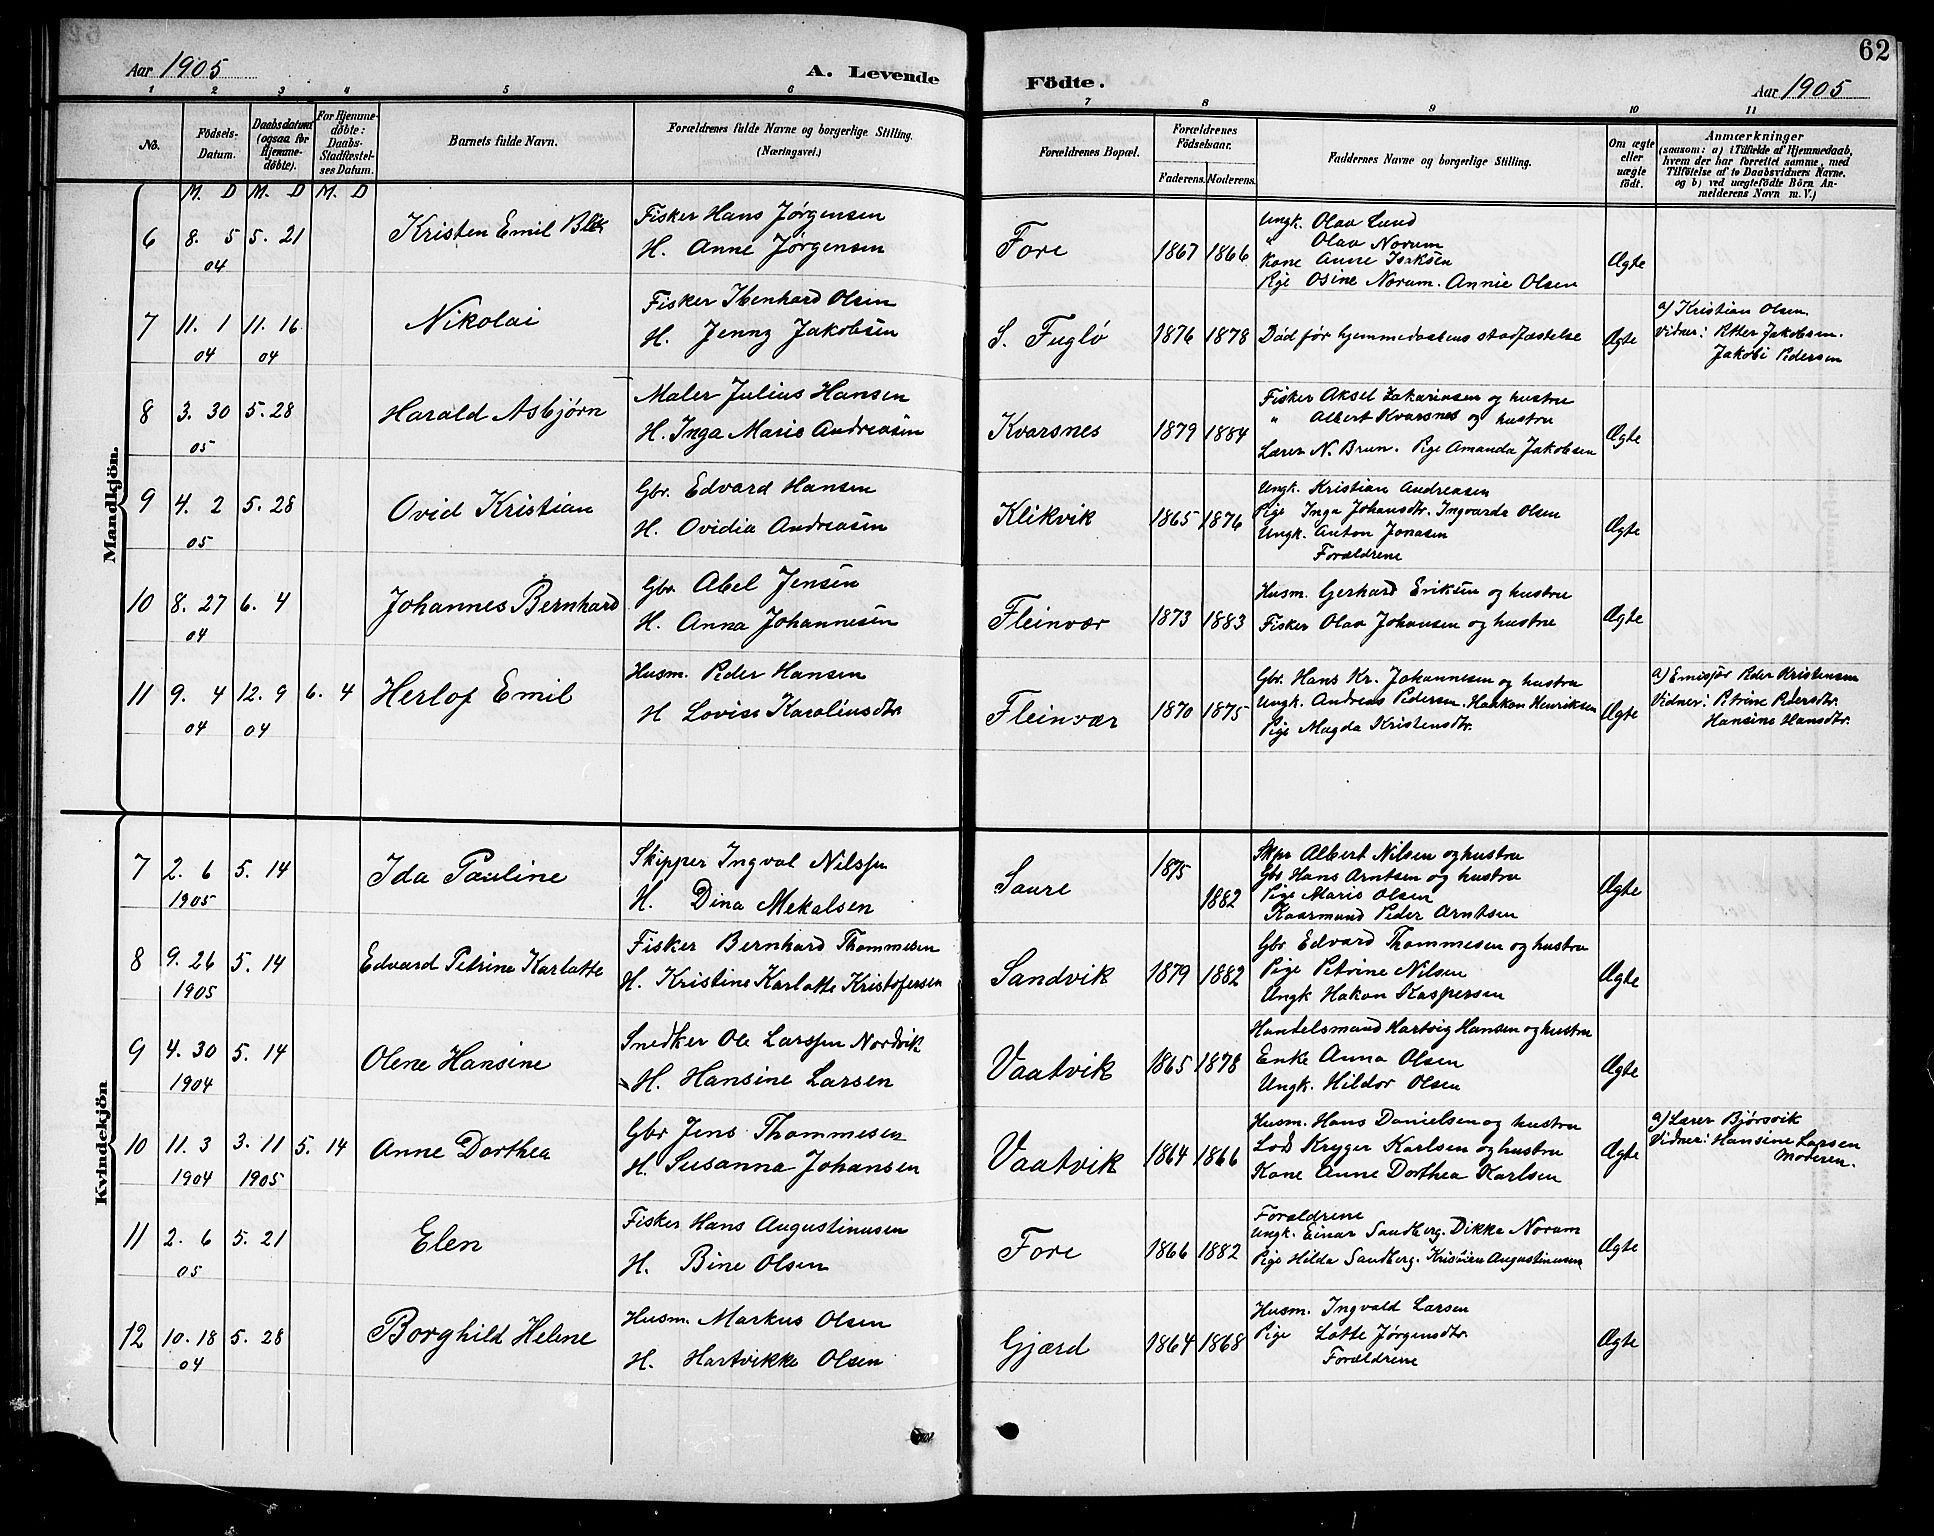 Aar 1905
A. Levende
Födte.
Aar 1905
62
1 2 3 4 5 6 7 8 9 10 11
No.
Födsels-Datum.
Daabsdatum (ogsaa for Hjemme-døbte).
For Hjemme-døbte: Daabs-Stadfæstel-ses Datum.
Barnets fulde Navn.
Forældrenes fulde Navne og borgerlige Stilling.
(Næringsvei.)
Forældrenes Bopæl.
Forældrenes Födselsaar.
Faderens. Moderens.
Faddernes Navne og borgerlige Stilling.
Om ægte eller uægte födt.
Anmærkninger
(saasom: a) i Tilfælde af Hjemmedaab, hvem der har forrettet samme, med Tilföielse af to Daabsvidners Navne, og b) ved uægtefödte Börn An-melderens Navn m. V.)
M. D M. D M. D
Mandkjön.
6 8. 5 5. 21 Kristen Emil Fisker Hans Jørgensen Fore 1867 1866 Ungk. Olav Lund Ægte
04 H. Anne Jørgensen " Olav Norum
Kone Anne Isaksen
Pige Osine Norum. Annie Olsen
7 11. 1 11. 16 Nikolai Fisker Ibenhard Olsen S. Fuglø 1876 1878 Død før hjemmedaabens stadfæstelse Ægte a) Kristian Olsen.
04 04 H. Jenny Jakobsen Vidner: Petter Jakobsen.
Jakobi Pedersen
8 3. 30 5. 28 Harald Asbjørn Maler Julius Hansen Kvarsnes 1879 1884 Fisker Aksel Zakariasen og hustru Ægte
05 H. Inga Marie Andreasen " Albert Kvarsnes og hustru
Lærer N. Brun. Pige Amanda Jakobsen
9 4. 2 5. 28 Ovid Kristian Gbr. Edvard Hansen Klikvik 1865 1876 Ungk. Kristian Andreasen Ægte
05 H. Ovidia Andreasen Pige Inga Johansdtr. Ingvarda Olsen
Ungk. Anton Jonasen
Forældrene
10 8. 27 6. 4 Johannes Bernhard Gbr. Abel Jensen Fleinvær 1873 1883 Husm. Gerhard Eriksen og hustru Ægte
04 H. Anna Johannesen Fisker Olav Johansen og hustru
11 9. 4 12. 9 6. 4 Herlof Emil Husm. Peder Hansen Fleinvær 1870 1875 Gbr. Hans Kr. Johannesen og hustru Ægte a) Emisjør Peder Kristensen
04 04 H Lovise Karoliusdtr Ungk. Andreas Pedersen. Haakon Henriksen Vidner: Petrine Pedersdtr.
Pige Magda Kristensdtr. Hansine Hansdtr.
Kvindekjön
7 2. 6 5. 14 Ida Pauline Skipper Ingval Nilssen Saure 1875 1882 Skpr Albert Nilsen og hustru Ægte
1905 H. Dina Mekalsen Gbr Hans Arntsen og hustru
Pige Marie Olsen
Kaarmand Peder Arntsen
8 9. 26 5. 14 Edvard Petrine Karlotte Fisker Bernhard Thommesen Sandvik 1879 1882 Gbr Edvard Thommesen og hustru Ægte
1905 H. Kristine Karlotte Kristofersen Pige Petrine Nilsen
Ungk Hakon Kaspersen
9 4. 30 5. 14 Olene Hansine Snedker Ole Larssen Nordvik Vaatvik 1865 1878 Handelsmand Hartvig Hansen og hustru Ægte
1904 H. Hansine Larsen Enke Anna Olsen
Ungk. Hildor Olsen
10 11. 3 3. 11 5. 14 Anne Dorthea Gbr Jens Thommesen Vaatvik 1864 1866 Husm. Hans Danielsen og hustru Ægte a) Lærer Bjørsvik
1904 1905 H. Susanna Johansen Lods Kryger Karlsen og hustru Vidner: Hansine Larsen
Kone Anne Dorthea Karlsen Moderen.
11 2. 6 5. 21 Elen Fisker Hans Augustinusen Fore 1866 1882 Forældrene Ægte
05 H. Bine Olsen Ungk. Einar Sandberg. Dikka Norum
Pige Hilda Sandberg. Augustinusen
12 10. 18 5. 28 Borghild Helene Husm. Markus Olsen Gjærd 1864 1868 Husm. Ingvald Larsen Ægte
04 H. Hartvikke Olsen Pige Lotte Jørgensdtr.
Forældrene